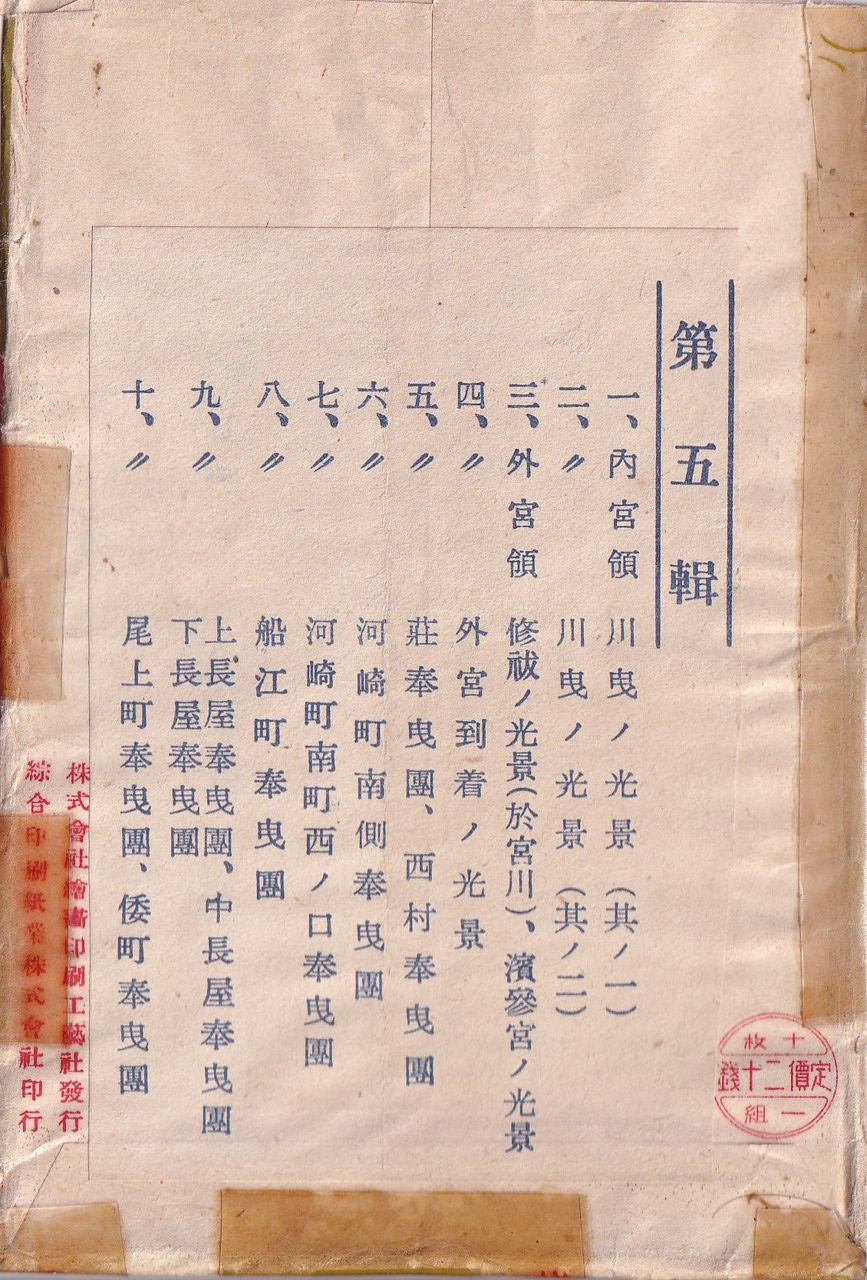 第五輯
一、內宮領 川曳ノ光景（其ノ一）
二、〃 川曳ノ光景（其ノ二）
三、外宮領 修祓ノ光景（於宮川）、濱參宮ノ光景
四、〃 外宮到着ノ光景
五、〃 莊奉曳團、西村奉曳團
六、〃 河崎町南側奉曳團
七、〃 河崎町南町西ノ口奉曳團
八、〃 船江町奉曳團
九、〃 上長屋奉曳團、中長屋奉曳團
下長屋奉曳團
十、〃 尾上町奉曳團、倭町奉曳團
十枚
定價二十錢
一組
株式會社繪畵印刷工藝社發行
綜合印刷紙業株式會社印行